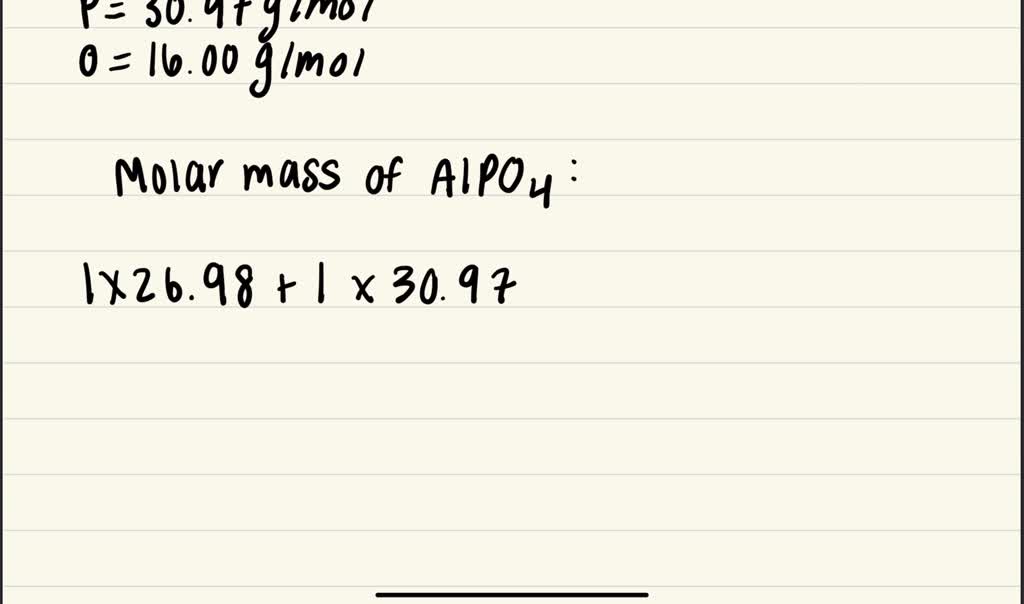 P = 30.97 g/mol
O = 16.00 g/mol
Molar mass of AlPO4:
1x26.98 + 1 x 30.97